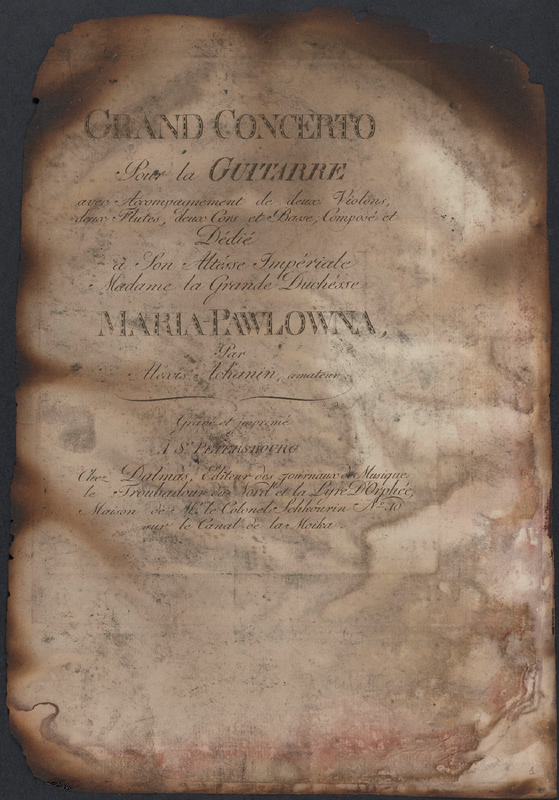 GRAND CONCERTO
Pour la GUITARRE
avec Accompagnement de deux Violons,
deux Flutes, deux Cors et Basse, Composé et
Dédié
à Son Altésse Impériale
Madame la Grande Duchésse
MARIA PAWLOWNA,
Par
Alexis amateur
Gravé et imprimé
A St PETERSBOURG
Chez Dalmas, Editeur des Journaux de Musique
le Troubadour du Nord et la Lyre D'Orphée,
Maison de Mr. le Colonel Schkourin No. 10
sur le Canal de la Moika.